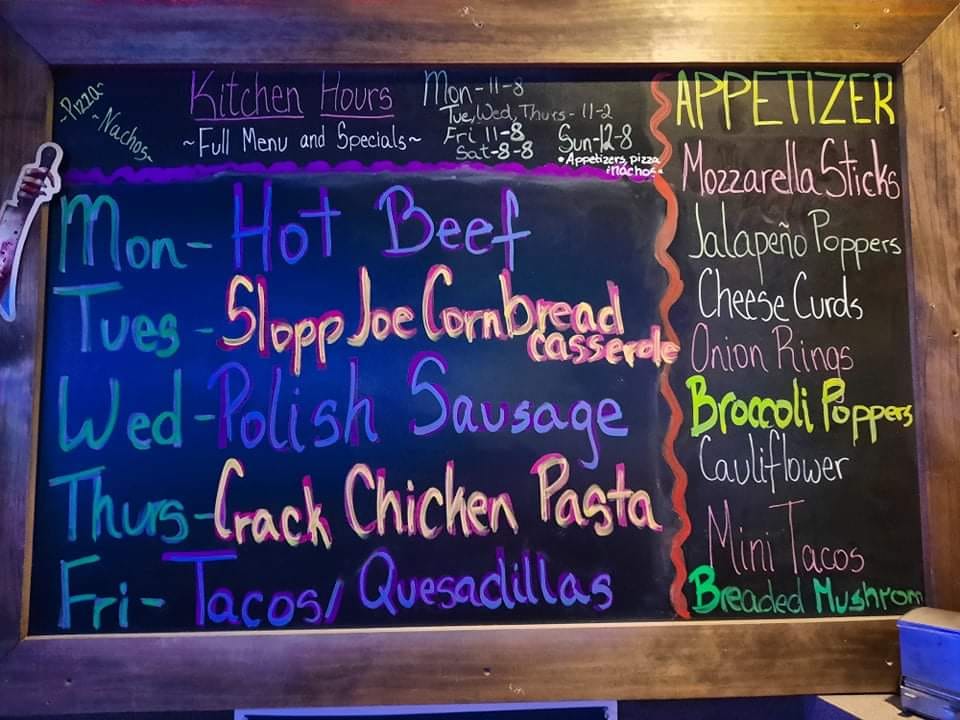 -Pizza-
-Nachos-
Kitchen Hours
~Full Menu and Specials~
Mon-11-8
Tue, Wed, Thurs-11-2
Fri 11-8
Sat-8-8
Sun-12-8
*Appetizers, pizza
nachos*
Mon- Hot Beef
Tues - Slopp Joe Cornbread
casserole
Wed - Polish Sausage
Thurs - Crack Chicken Pasta
Fri - Tacos/ Quesadillas
APPETIZER
Mozzarella Sticks
Jalapeño Poppers
Cheese Curds
Onion Rings
Broccoli Poppers
Cauliflower
Mini Tacos
Breaded Mushrom